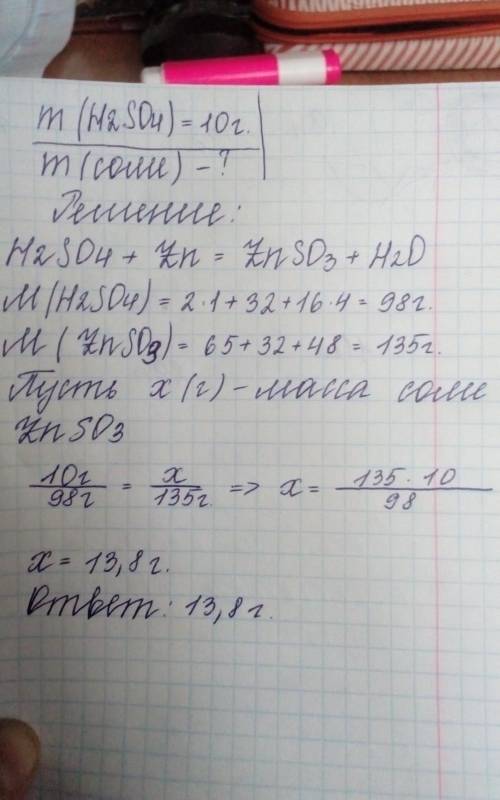 m (H2SO4) = 10г.
m (соли) - ?
Решение:
H2SO4 + Zn = ZnSO3 + H2O
M (H2SO4) = 2·1 + 32 + 16·4 = 98г.
M ( ZnSO3) = 65 + 32 + 48 = 135г.
Пусть x (г) - масса соли
ZnSO3
10г/98г = x/135г. => x = 135 · 10/98
x = 13,8г.
Ответ: 13,8г.